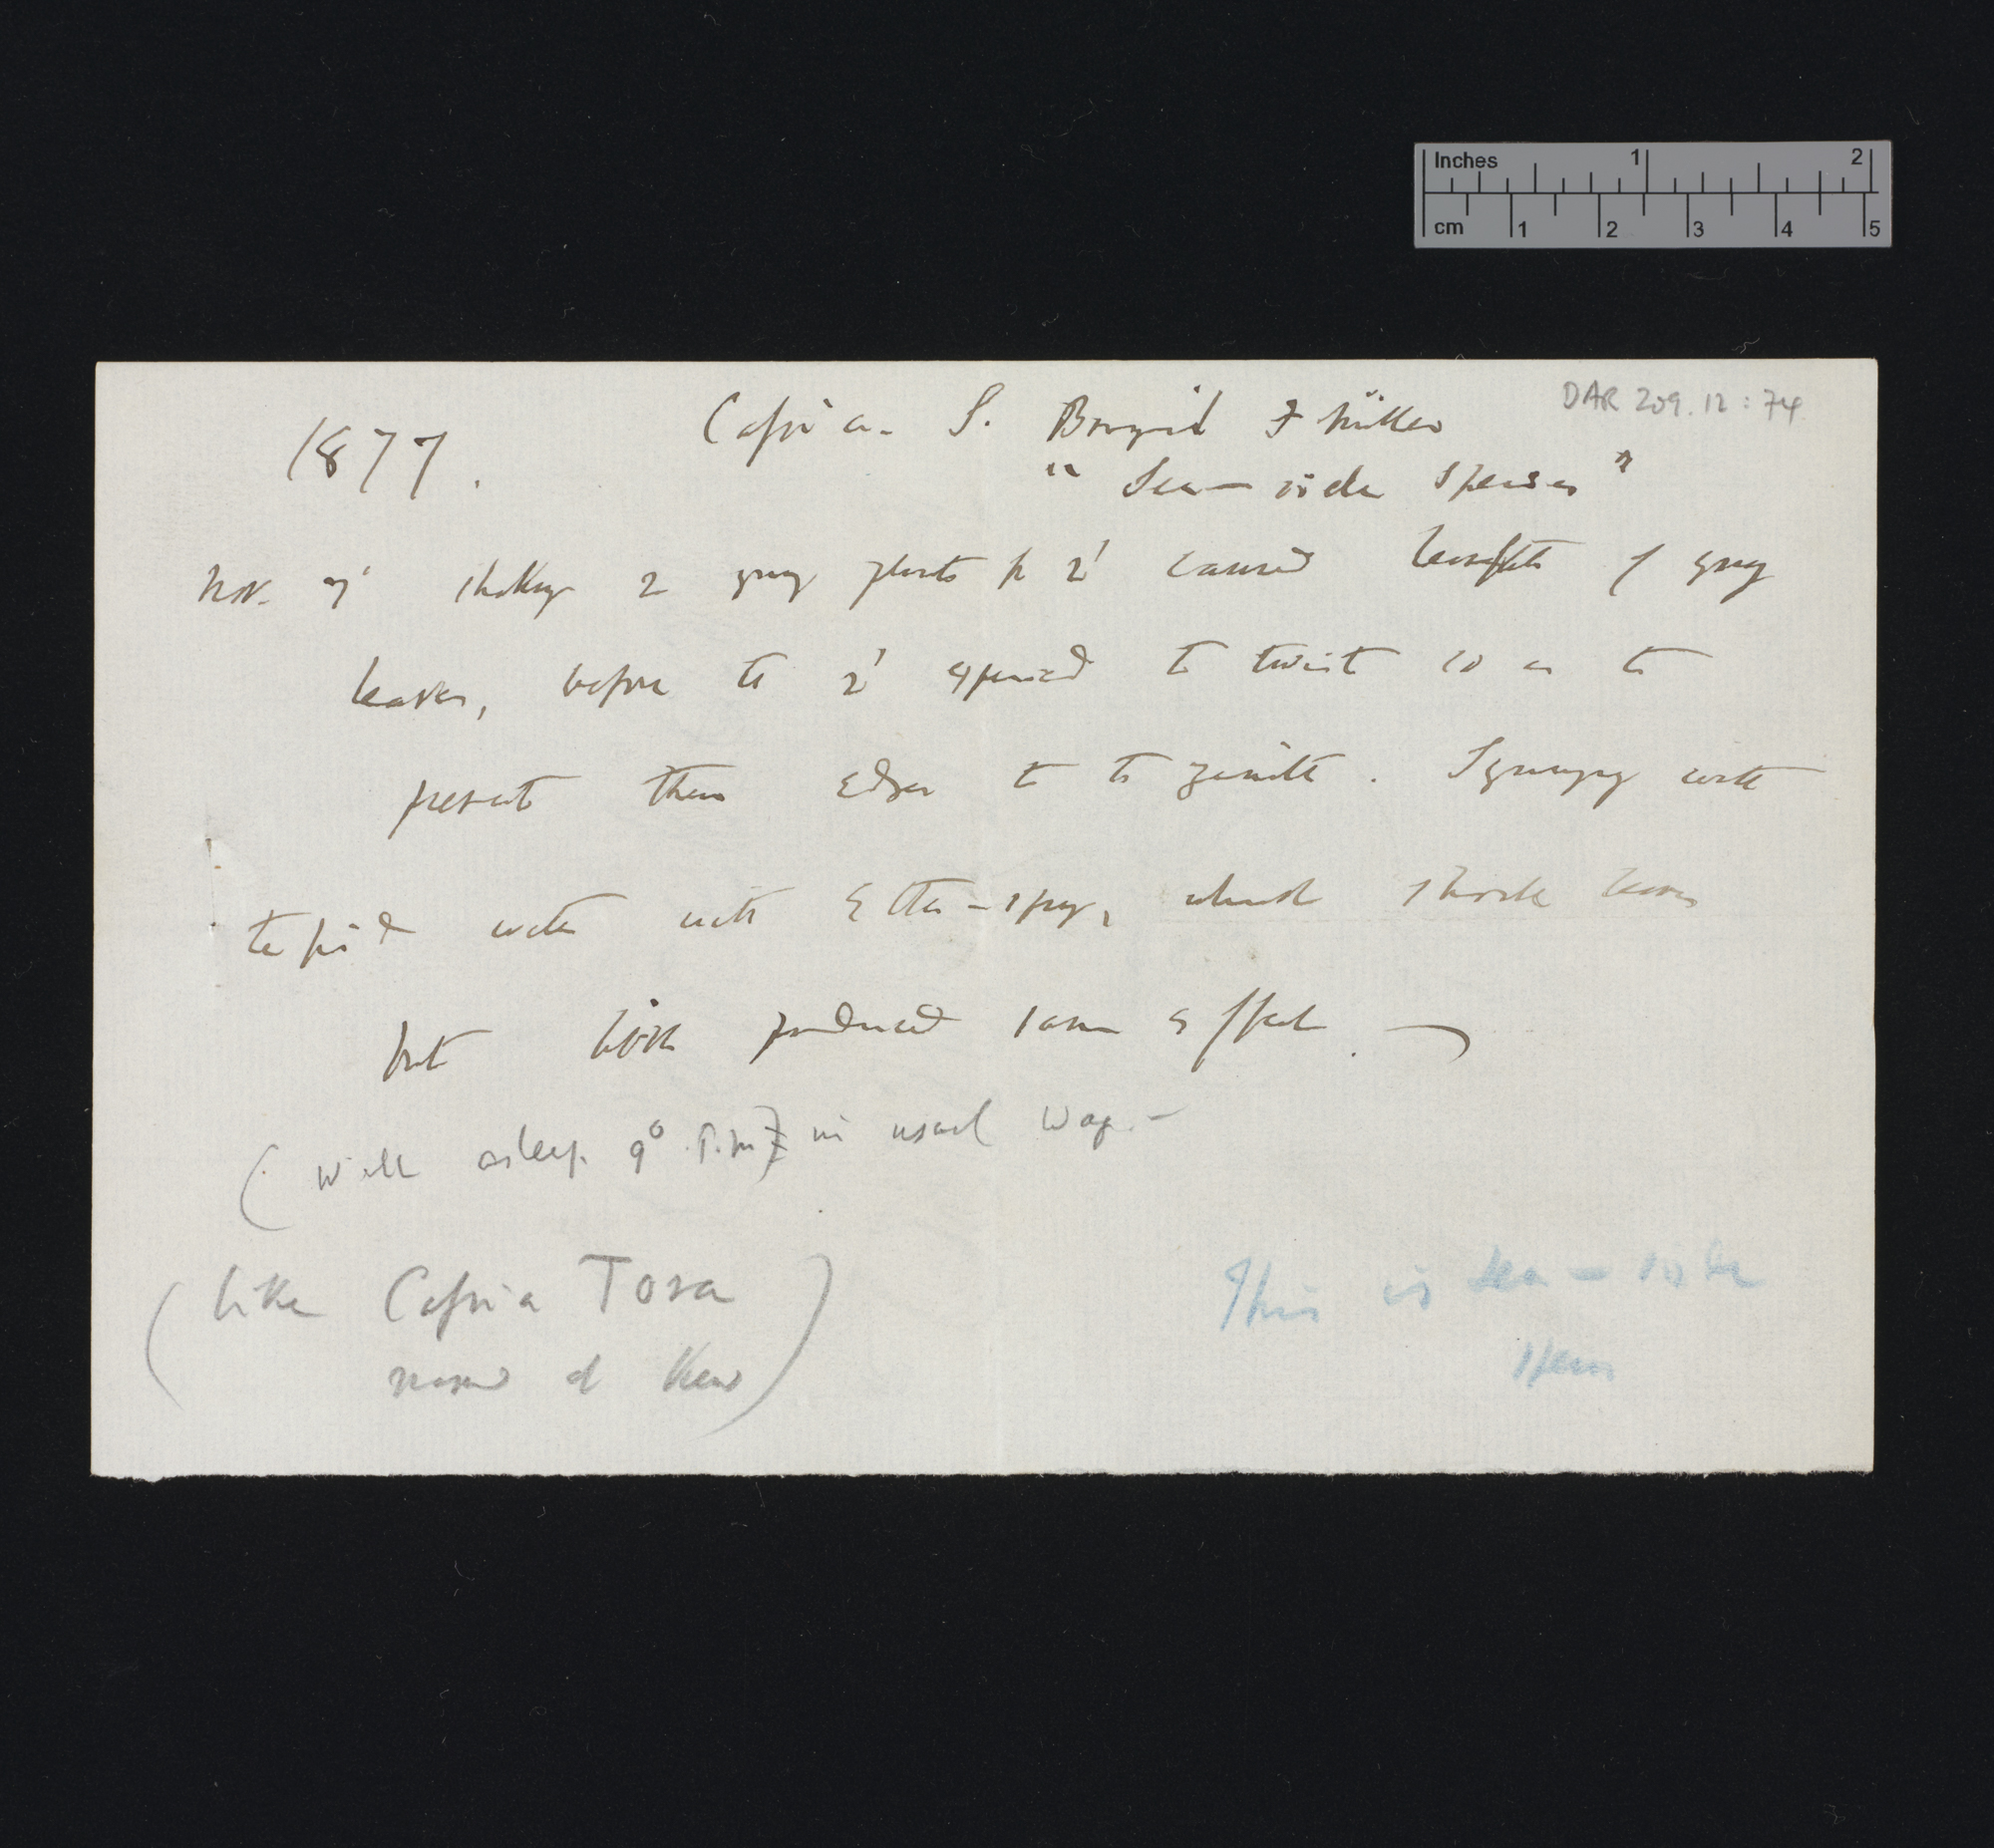 Inches 1 2
cm 1 2 3 4 5
DAR 209.12:74
1877. Cassia. S. Brazil F Müller
"Sea-side Species"
Nov. 7' shaking 2 young plants for 2' caused leaflets of young
leaves, before the 2' expired to twist so as to
present their edges to the zenith. Syringing with
tepid water with Ether-spray, which shook leaves
but little produced same effect. —
(Well asleep. 9° P.m) in usual way. —
(like Cassia Tora
named at Kew)
This is Sea-side
species